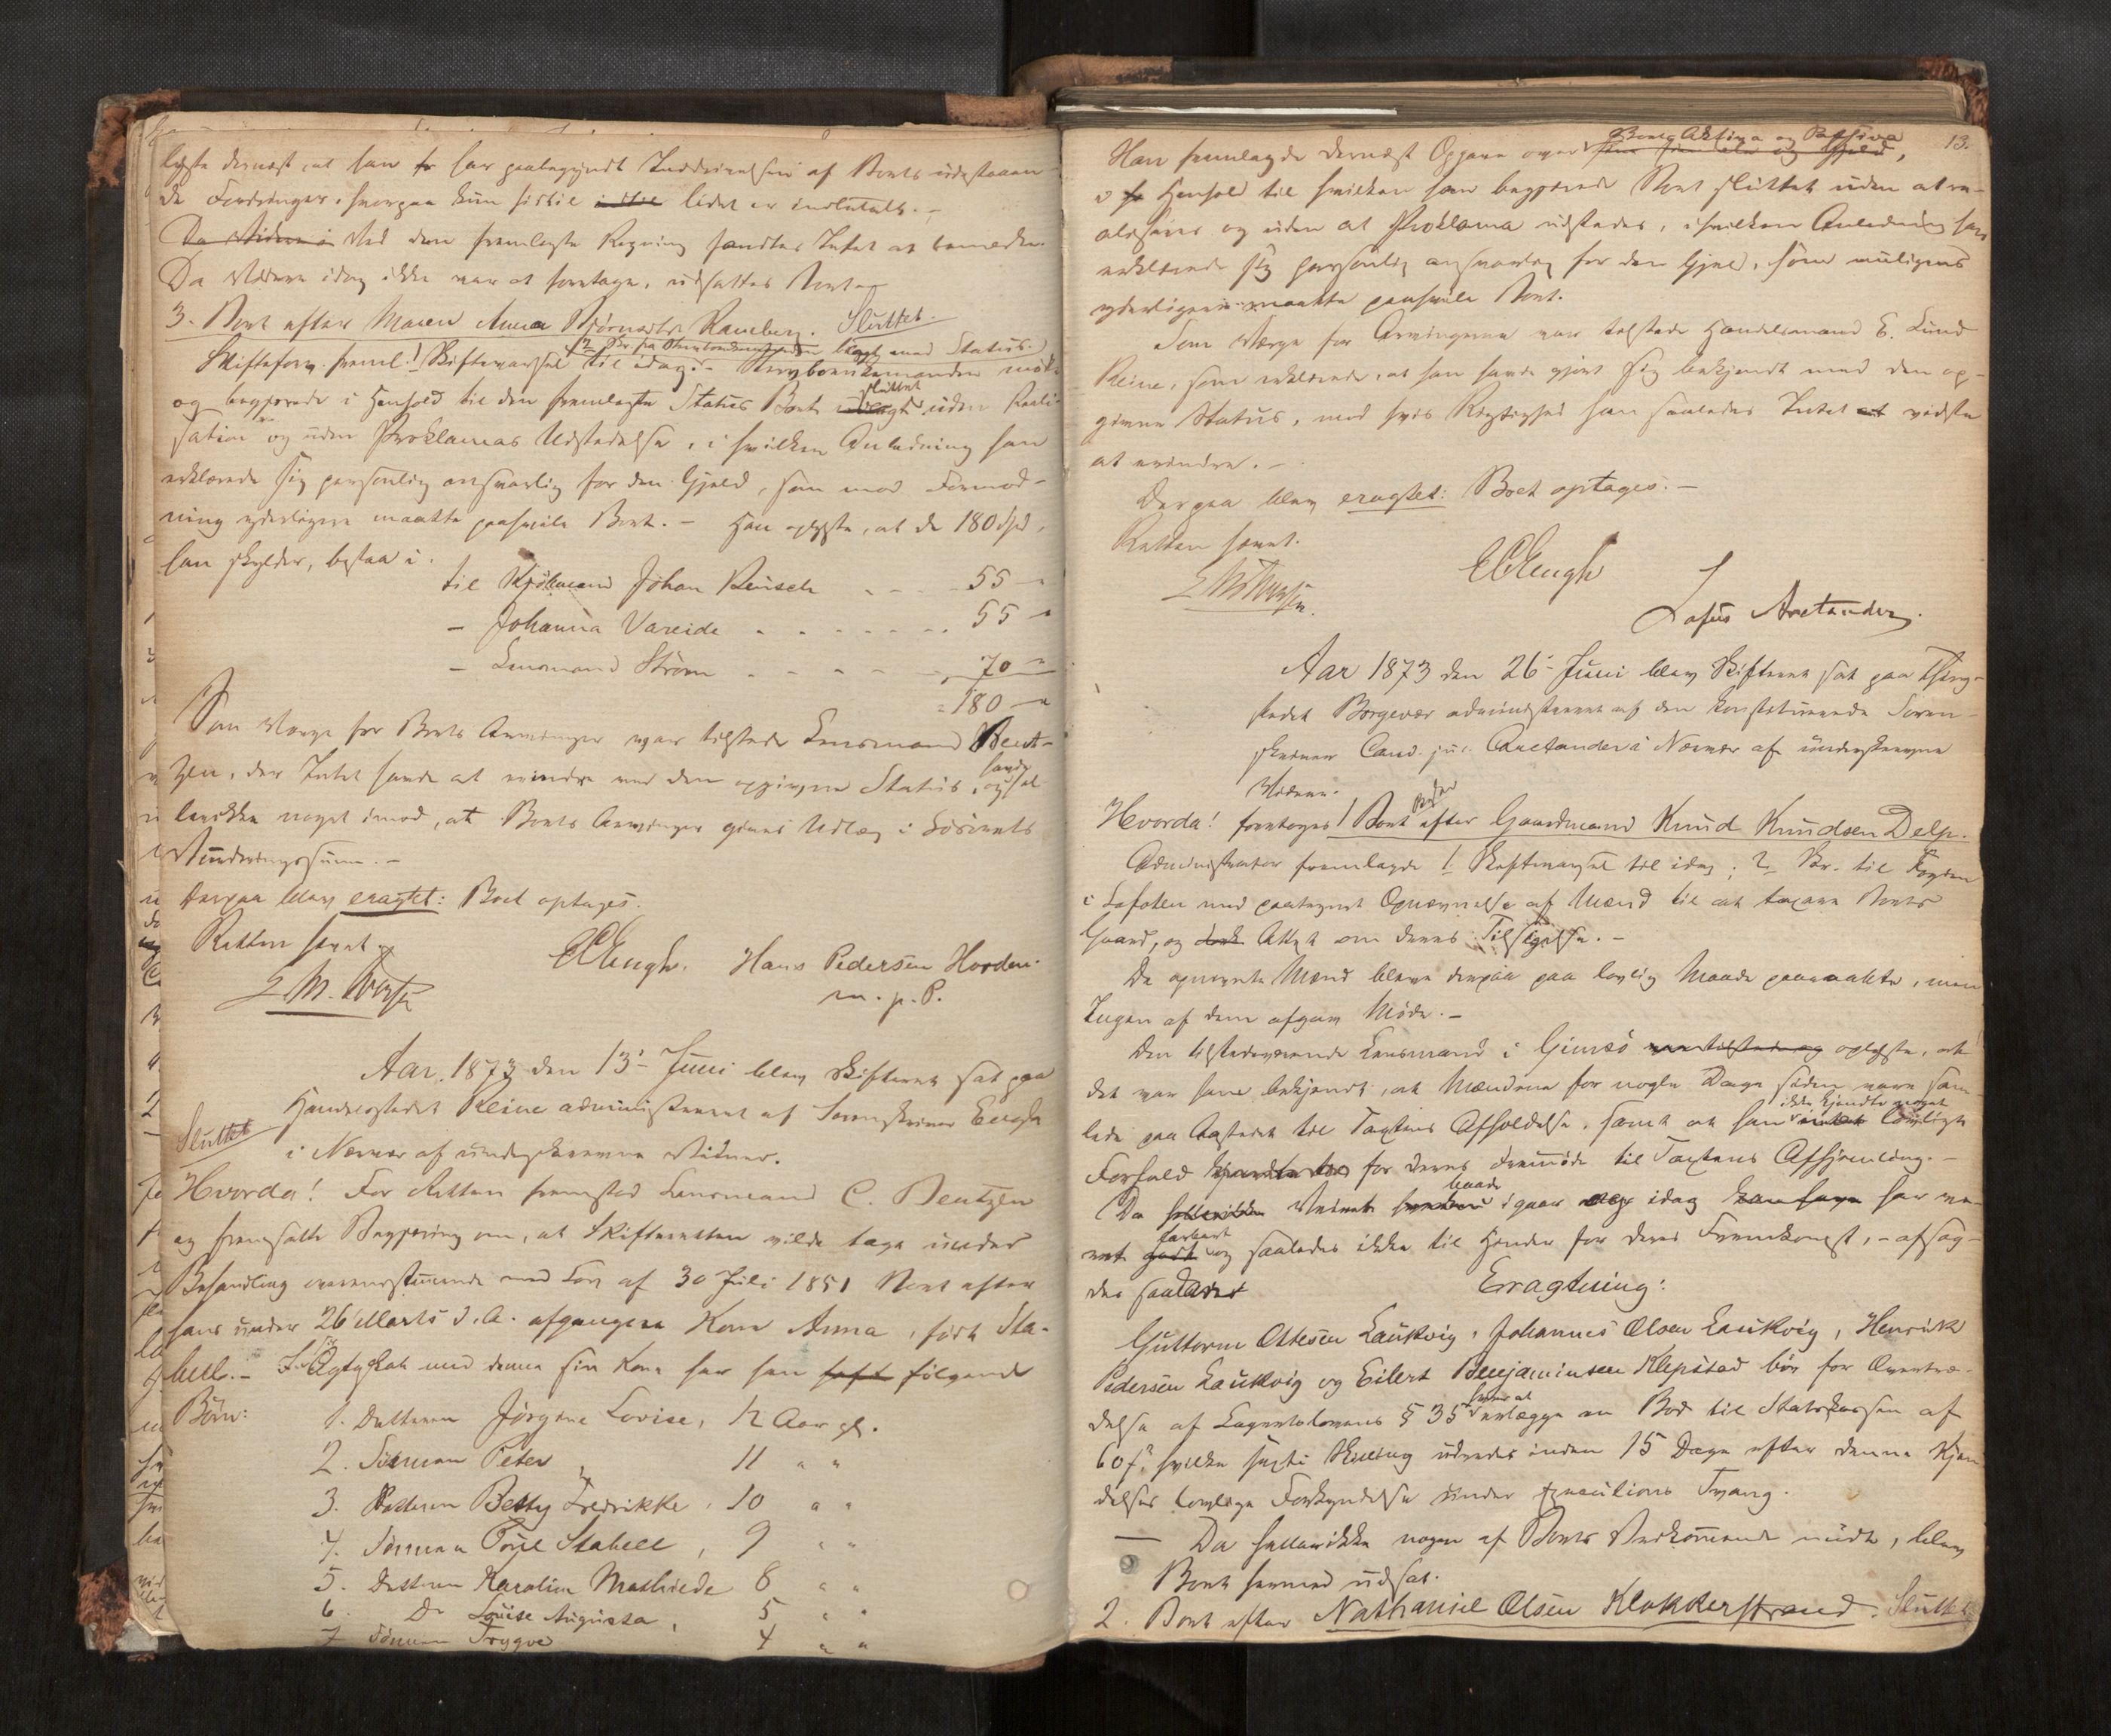 lyste dernæst, at han har paabegyndt Inddrivelsen af Boets udestaaen-
de Fordringer, hvorpaa kun hidtil lidet er indbetalt. -
Ved den fremlagte Regning fandtes Intet at bemærke.
Da Videre idag ikke var at foretage, udsattes Boet.
3. Boet efter Maren Anna Bjørnsdtr. Ramberg. Sluttet.
Skifteforv. freml. 1 Skiftevarsel til idag, 2 Br. fra med Status
og begjærede i Henhold til den fremlagte Status Boet sluttet uden Reali-
sation og uden Proklamas Udstedelse, i hvilken Anledning han
erklærede sig personlig ansvarlig for den Gjæld, som mod Formod-
ning yderligere maatte paahvile Boet. - Han oplyste, at de 180 Spd,
han skylder, bestaa i:
til Kjøbmand Johan Reusch - - - 55 -
- Johanna Vareide - - - - - 55 -
- Lensmand Strøm - - - - - 70 -
= 180 -
Som Værge for Boets Arvinger var tilstede Lensmand Bent-
zen, der Intet havde at erindre ved den opgivne Status, og havde hel-
ler ikke noget imod, at Boets Arvinger gives Udlæg i Løsørets
Vurderingssum. -
Derpaa blev eragtet: Boet optages.
Retten hævet.
E C Engh. Hans Pedersen Horden
m. p. P.
Aar 1873 den 13de Juni blev Skifteret sat paa
Handelsstedet Reine administreret af Sorenskriver Engh
Sluttet
i Nærvær af underskrevne Vidner.
Hvorda! For Retten fremstod Lensmand C. Bentzen
og fremsatte Begjæring om, at Skifteretten vilde tage under
Behandling overensstemmende med Lov af 30 Juli 1851 Boet efter
hans under 26 Marts d. A. afgangne Kone Anna, født Sta-
bell. - I Ægteskab med denne sin Kone har han følgende
Børn: 1. Datteren Jørgine Lovise, 12 Aar gl.
2. Sønnen Peter, 11 " "
3. Datteren Betty Fredrikke, 10 " "
4. Sønnen Stabell, 9 " "
5. Datteren Karoline Mathilde 8 " "
6. Do Louise Augusta, 5 " "
7 Sønnen Trygve 4 " "
13.
Han fremlagde dernæst Opgave over Boets Aktiva og Passiva,
i Henhold til hvilken han begjærede Boet sluttet uden at re-
aliseres og uden at Proklama udstedes, i hvilken Anledning han
erklærede sig personlig ansvarlig for den Gjæld, som muligens
yderligere maatte paahvile Boet.
Som Værge for Arvingerne var tilstede Handelsmand E. Lund
Reine, som erklærede, at han havde gjort sig bekjendt med den op-
givne Status, mod hvis Rigtighed han saaledes Intet vidste
at erindre. -
Derpaa blev eragtet: Boet optages. -
Retten hævet.
E C Engh
Arctander
Aar 1873 den 26de Juni blev Skifteret sat paa Thing-
stedet Borgevær administreret af den konstituerede Soren-
skriver Cand. jur. Arctander i Nærvær af underskrevne
Vidner.
Hvorda! foretoges 1 Boet efter Gaardmand Knud Knudsen Delp.
Administrator fremlagde 1 Skiftevarsel til idag; 2 Br. til Fogden
i Lofoten med paategnet Opnævnelse af Mænd til at taxere Boets
Gaard, og Attest om deres Tilsigelse. -
De opnævnte Mænd bleve derpaa paa lovlig Maade paaraabte, men
Ingen af dem afgav Møde. -
Den tilstedeværende Lensmand i Gimsø oplyste, at
det var ham bekjendt, at Mændene for nogle Dage siden vare sam-
lede paa Aastedet til Taxtens Afholdelse, samt at han ikke kjendte noget lovligt
Forfald for deres Fremmøde til Taxtens Afhjemling. -
Da Veiret baade igaar og idag har væ-
ret og saaledes ikke til Hinder for deres Fremkomst, - afsag-
des saadan
Eragtning:
Guttorm Ottesen Laukvig, Johannes Olsen Laukvig, Henrik
Pedersen Laukvig og Eilert Benjaminsen Klepstad bør for Overtræ-
delse af § 35 hver at erlægge en Bod til Statskassen af
60 ß, hvilke sexti Skilling udredes inden 15 Dage efter denne Kjen-
delses lovlige Forkyndelse under Executions Tvang.
- Da heller ikke nogen af Boets Vedkommende mødte, blev
Boet hermed udsat.
2. Boet efter Nathanael Olsen Klokkerstrand. Sluttet